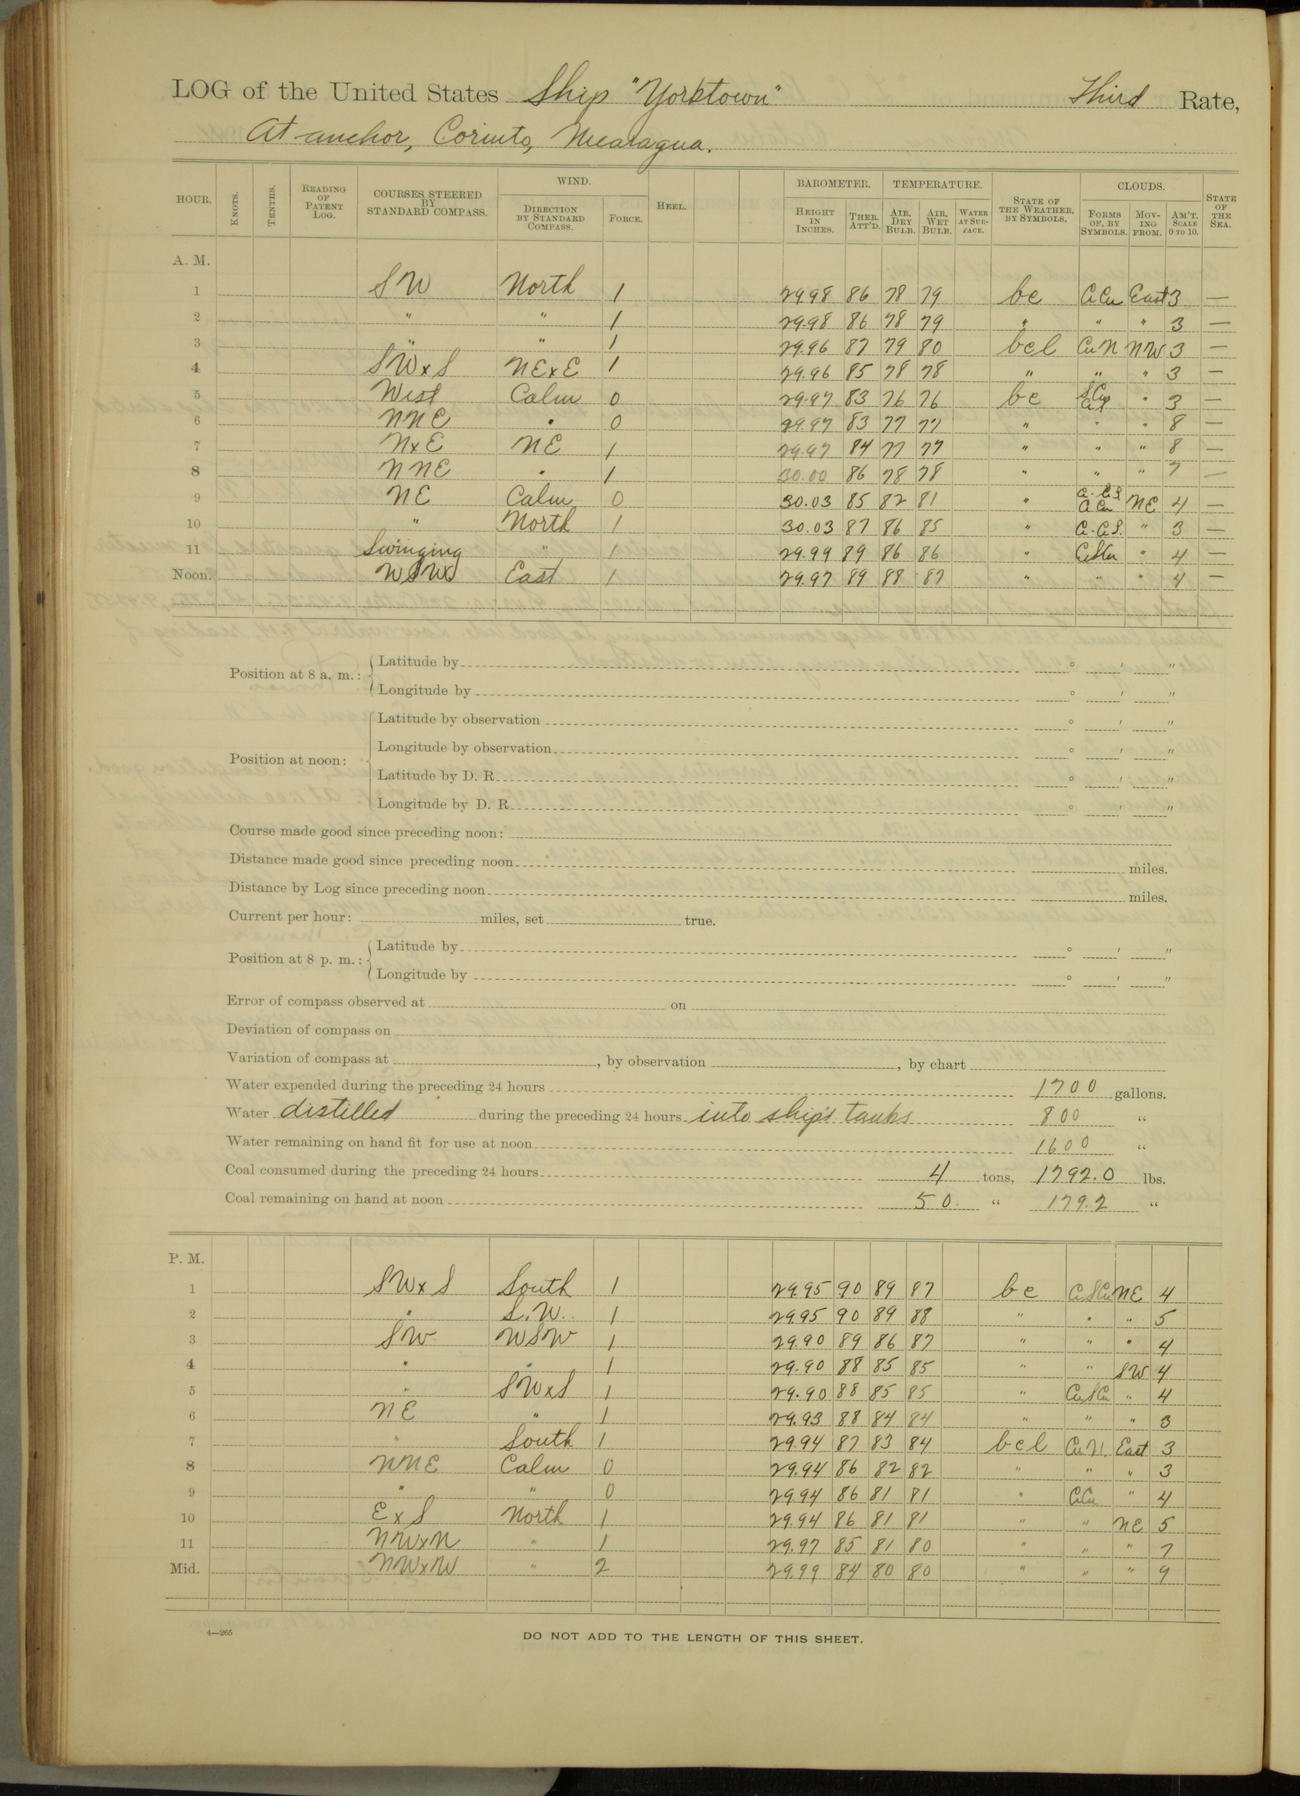 LOG of the United States Ship "Yorktown" Third Rate,
At anchor, Corinto, Nicaragua.
HOUR. KNOTS. TENTHS. READING OF PATENT LOG. COURSES STEERED BY STANDARD COMPASS. WIND. DIRECTION BY STANDARD COMPASS. FORCE. HEEL. BAROMETER. HEIGHT IN INCHES. THER. ATT'D. TEMPERATURE. AIR, DRY BULB. AIR, WET BULB. WATER AT SUR-FACE. STATE OF THE WEATHER, BY SYMBOLS. CLOUDS. FORMS OF, BY SYMBOLS. MOV-ING FROM. AM'T. SCALE 0 TO 10. STATE OF THE SEA.
A. M.
1 SW North 1 29.98 86 78 79 bc C.Cu East 3 —
2 " " 1 29.98 86 78 79 " " " 3 —
3 " " 1 29.96 87 79 80 bcl Cu N NW 3 —
4 SWxS NExE 1 29.96 85 78 78 " " " 3 —
5 West Calm 0 29.97 83 76 76 bc " 3 —
6 NNE " 0 29.97 83 77 77 " " " 8 —
7 NxE NE 1 29.97 84 77 77 " " " 8 —
8 NNE " 1 30.00 86 78 78 " " " 7 —
9 NE Calm 0 30.03 85 82 81 " C.-C.S. C.Cu NE 4 —
10 " North 1 30.03 87 86 85 " C.-C.S. " 3 —
11 Swinging " 1 29.99 89 86 86 " " 4 —
Noon. East 1 29.97 89 88 87 " " " 4 —
Position at 8 a. m.: Latitude by ° ' "
Longitude by ° ' "
Position at noon: Latitude by observation ° ' "
Longitude by observation ° ' "
Latitude by D. R. ° ' "
Longitude by D. R. ° ' "
Course made good since preceding noon:
Distance made good since preceding noon miles.
Distance by Log since preceding noon miles.
Current per hour: miles, set true.
Position at 8 p. m.: Latitude by ° ' "
Longitude by ° ' "
Error of compass observed at on
Deviation of compass on
Variation of compass at , by observation , by chart
Water expended during the preceding 24 hours 1700 gallons.
Water distilled during the preceding 24 hours into ship's tanks 800 "
Water remaining on hand fit for use at noon 1600 "
Coal consumed during the preceding 24 hours 4 tons, 1792.0 lbs.
Coal remaining on hand at noon 50 " 179.2 "
P. M.
1 SWxS South 1 29.95 90 89 87 bc NE 4
2 " S.W. 1 29.95 90 89 88 " " " 5
3 SW WSW 1 29.90 89 86 87 " " " 4
4 " " 1 29.90 88 85 85 " " SW 4
5 " SWxS 1 29.90 88 85 85 " Cu SCu " 4
6 NE " 1 29.93 88 84 84 " " " 3
7 " South 1 29.94 87 83 84 bcl Cu N. East 3
8 NNE Calm 0 29.94 86 82 82 " " " 3
9 " " 0 29.94 86 81 81 " C.Cu " 4
10 ExS North 1 29.94 86 81 81 " " NE 5
11 NWxN " 1 29.97 85 81 80 " " " 7
Mid. NWxW " 2 29.99 84 80 80 " " " 9
4—265
DO NOT ADD TO THE LENGTH OF THIS SHEET.